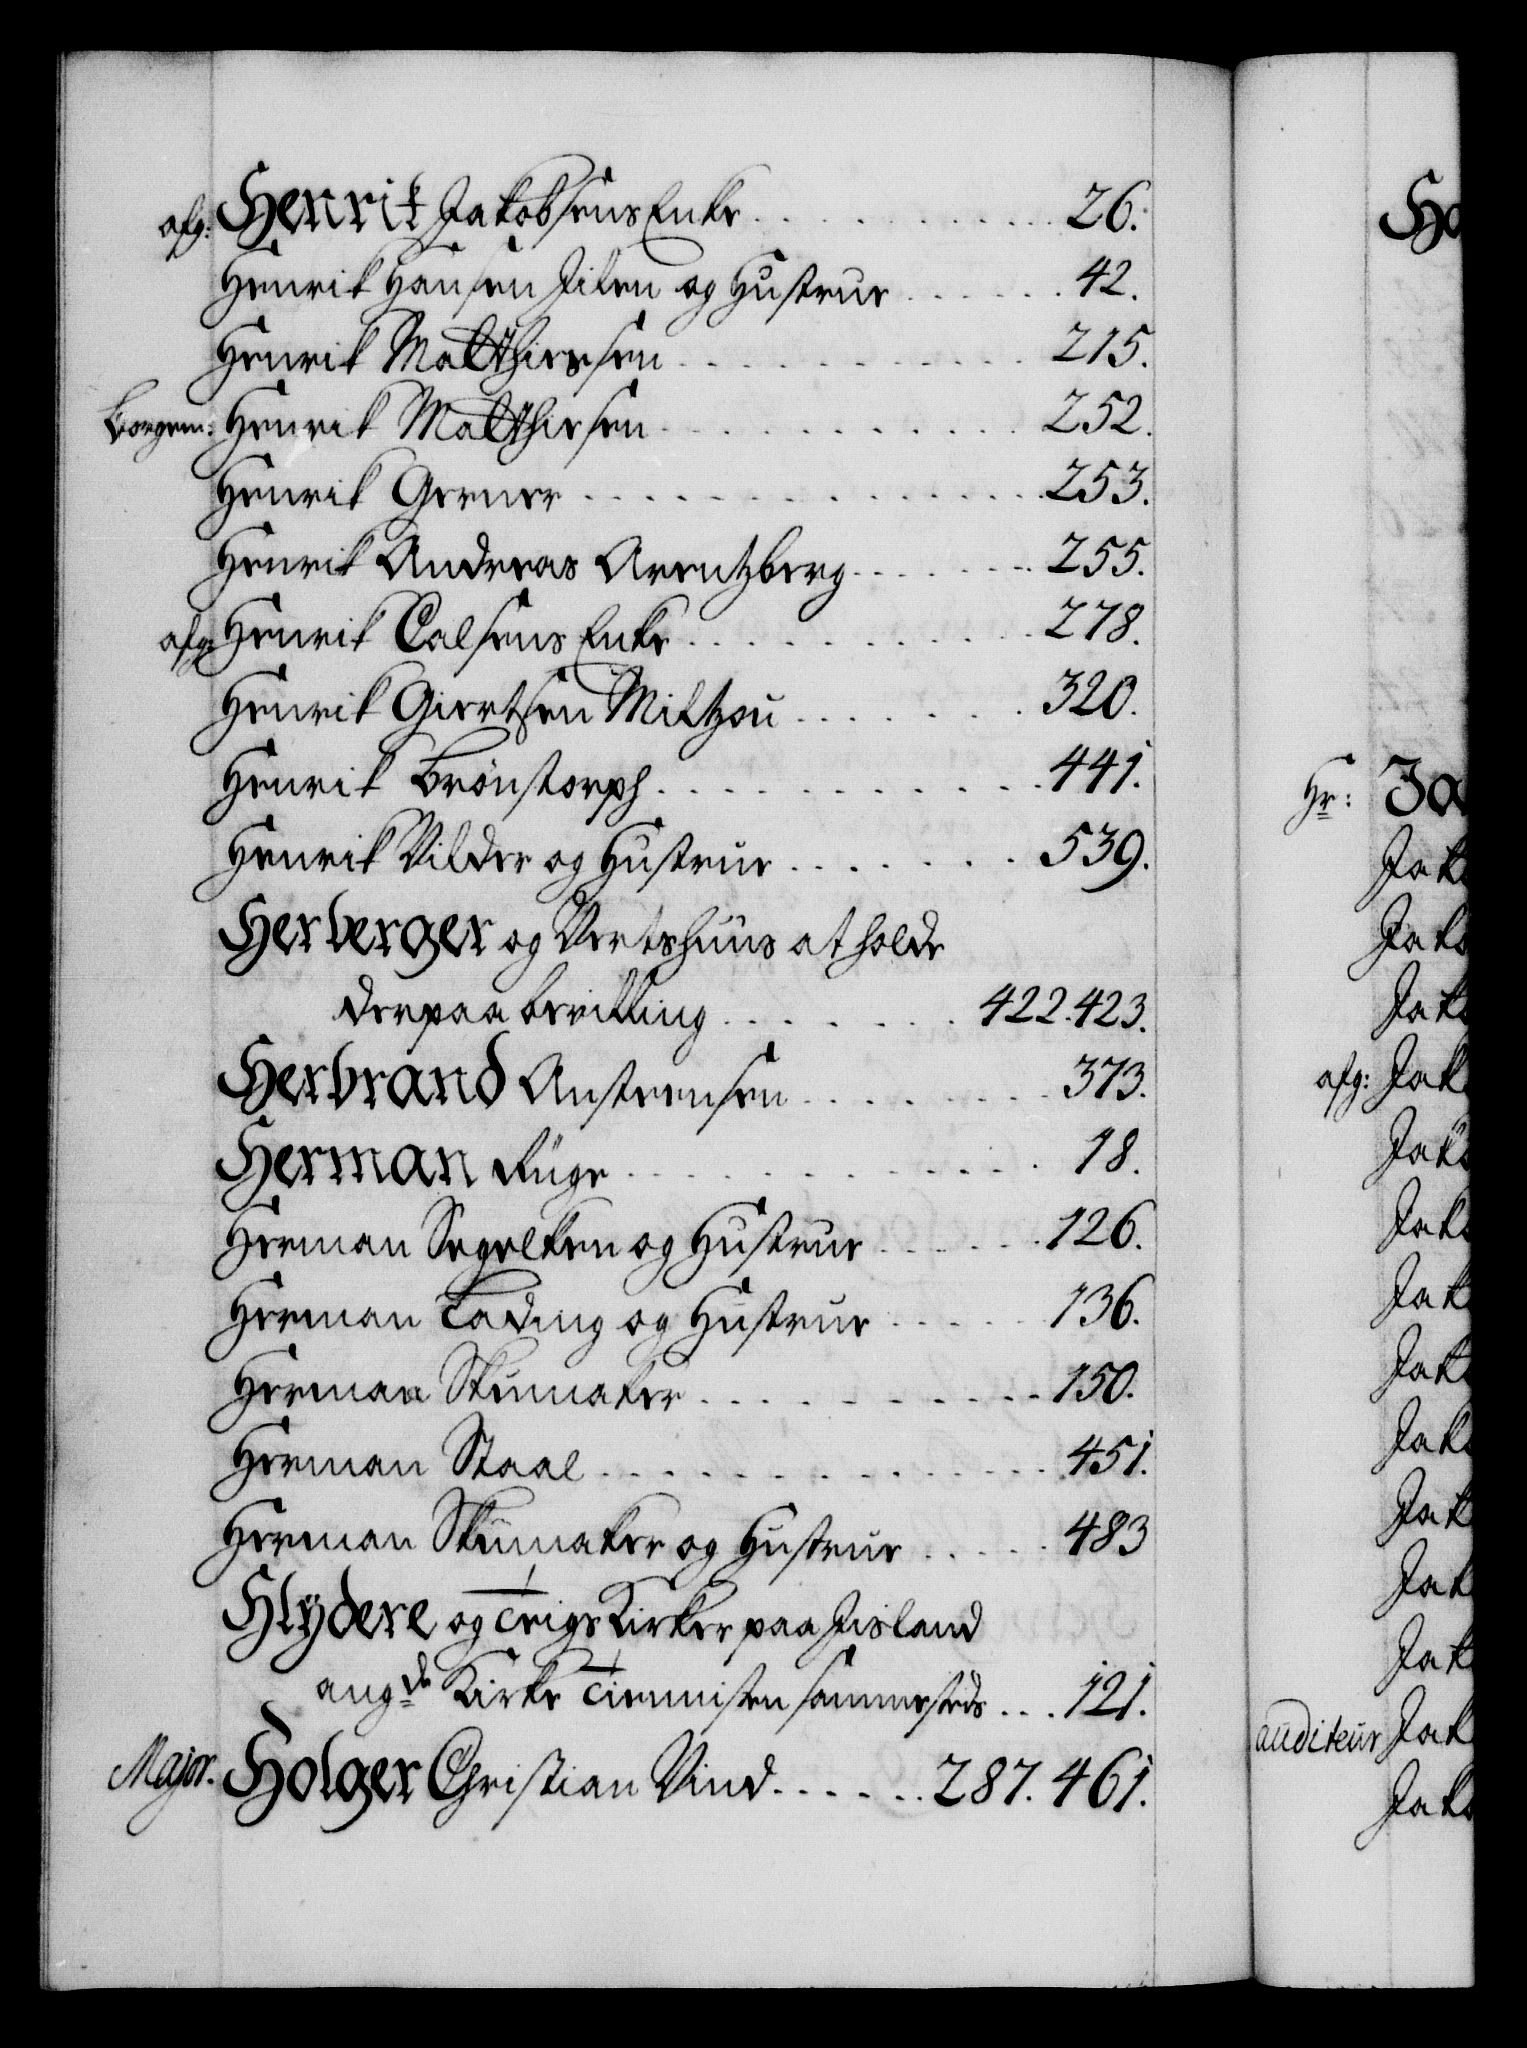 afg: Henrik Jakobsens Enke . . . . . . . . . . 26.
Henrik Hansen Jilen og Hustrue . . . . . . 42.
Henrik Matthiessen . . . . . . . . . . . 215.
Borgem: Henrik Matthiesen . . . . . . . . . . . 252.
Henrik Gerner . . . . . . . . . . . . . . 253.
Henrik Andreas Arentzberg . . . . . . . 255.
afg: Henrik Calsens Enke . . . . . . . . . . . 278.
Henrik Giertsen Miltzou . . . . . . . 320.
Henrik Brönstorph . . . . . . . . . . . . 441.
Henrik Vilder og Hustrue . . . . . . . 539.
Herberger og Vertshuus at holde
derpaa bevilling . . . . . . . 422. 423.
Herbrand Anstensen . . . . . . . . 373.
Herman Rüge . . . . . . . . . . . . . 18.
Herman Segelken og Hustrue . . . . . . 126.
Herman Tading og Hustrue . . . . . 136.
Herman Skumaker . . . . . . . . . . 150.
Herman Staal . . . . . . . . . . . . . . 451.
Herman Skumaker og Hustrue . . . . . 483
Hlÿdere og Teigs Kirker paa Jisland
angde Kirke Tiennisten sammesteds . . . 121.
Major. Holger Christian Vind . . . . . . 287. 461.
Ho
Hr: Ja
Jak
Jako
Jak
afg: Jak
Jak
Jak
Jak
Jak
Jak
Jak
Jak
Jak
auditeur Jak
Jak